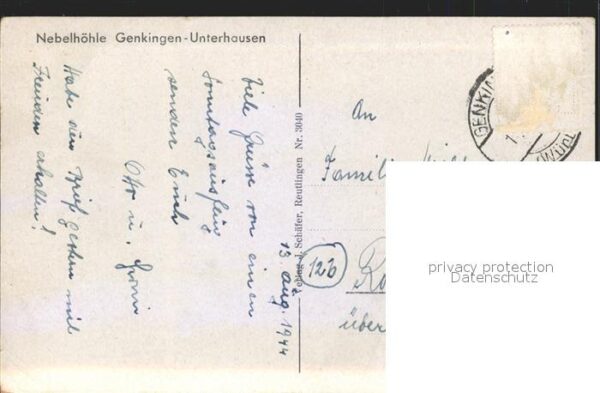 Nebelhöhle Genkingen-Unterhausen
13. Aug. 1944
Viele Grüsse von einem
Sonntagsausflug
senden Euch
Otto u.
Habe den Brief gestern mit
Freuden erhalten!
Verlag J. Schäfer, Reutlingen Nr. 3040
GENKIN
(WÜRTT
An
Familie
(12b)
über
privacy protection
Datenschutz